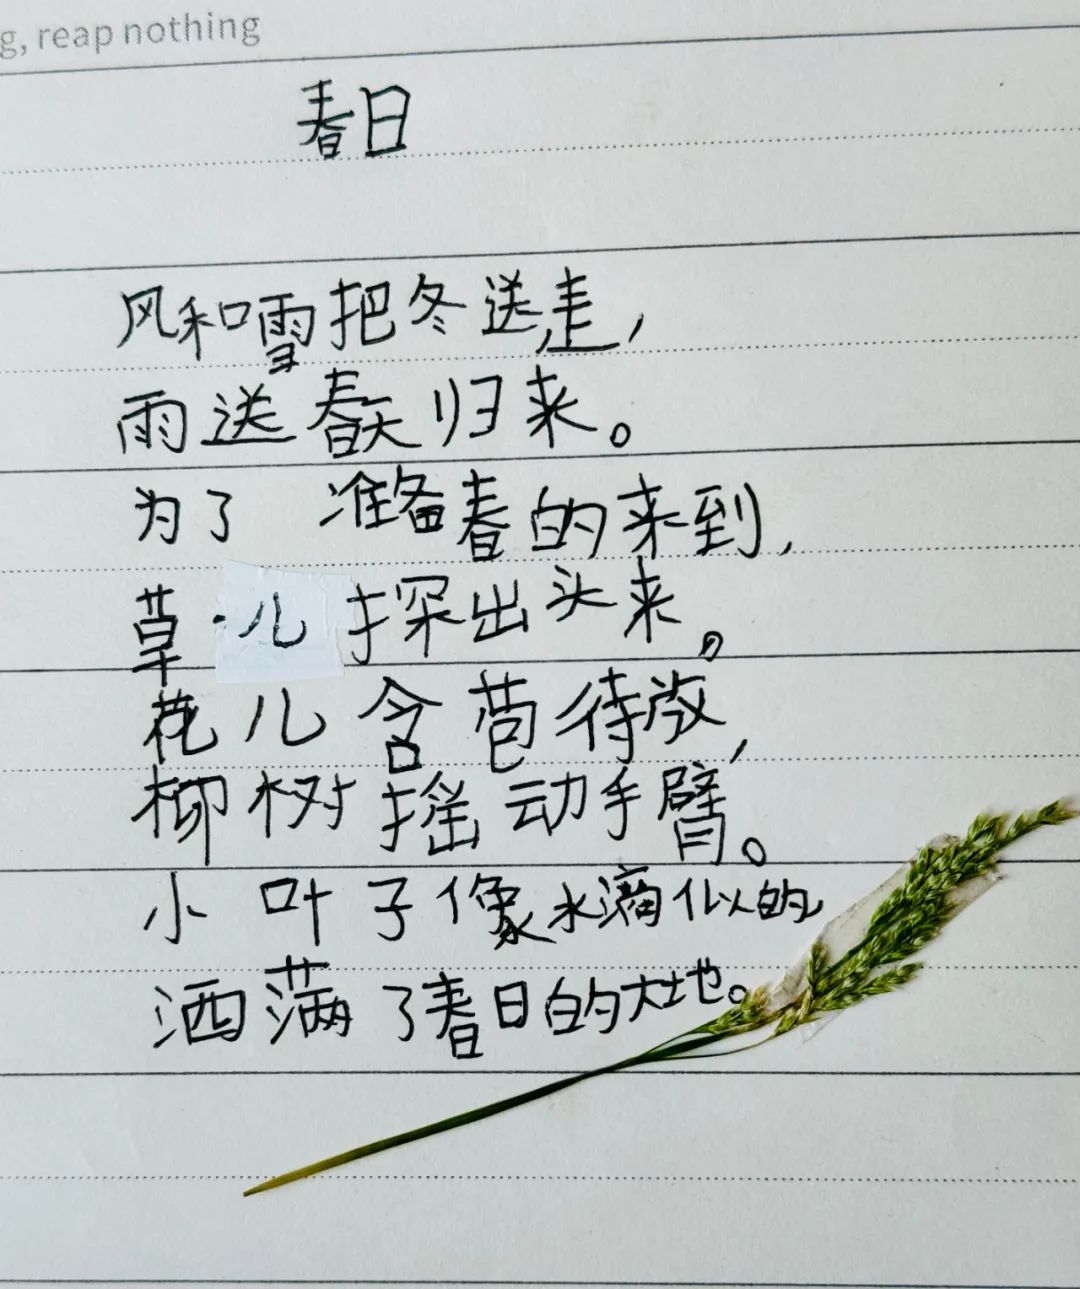 g, reap nothing
春日
风和雪把冬送走,
雨送春天归来。
为了 准备春的来到,
草儿探出头来。
花儿含苞待放,
柳树摇动手臂。
小叶子像水滴似的
洒满了春日的大地。